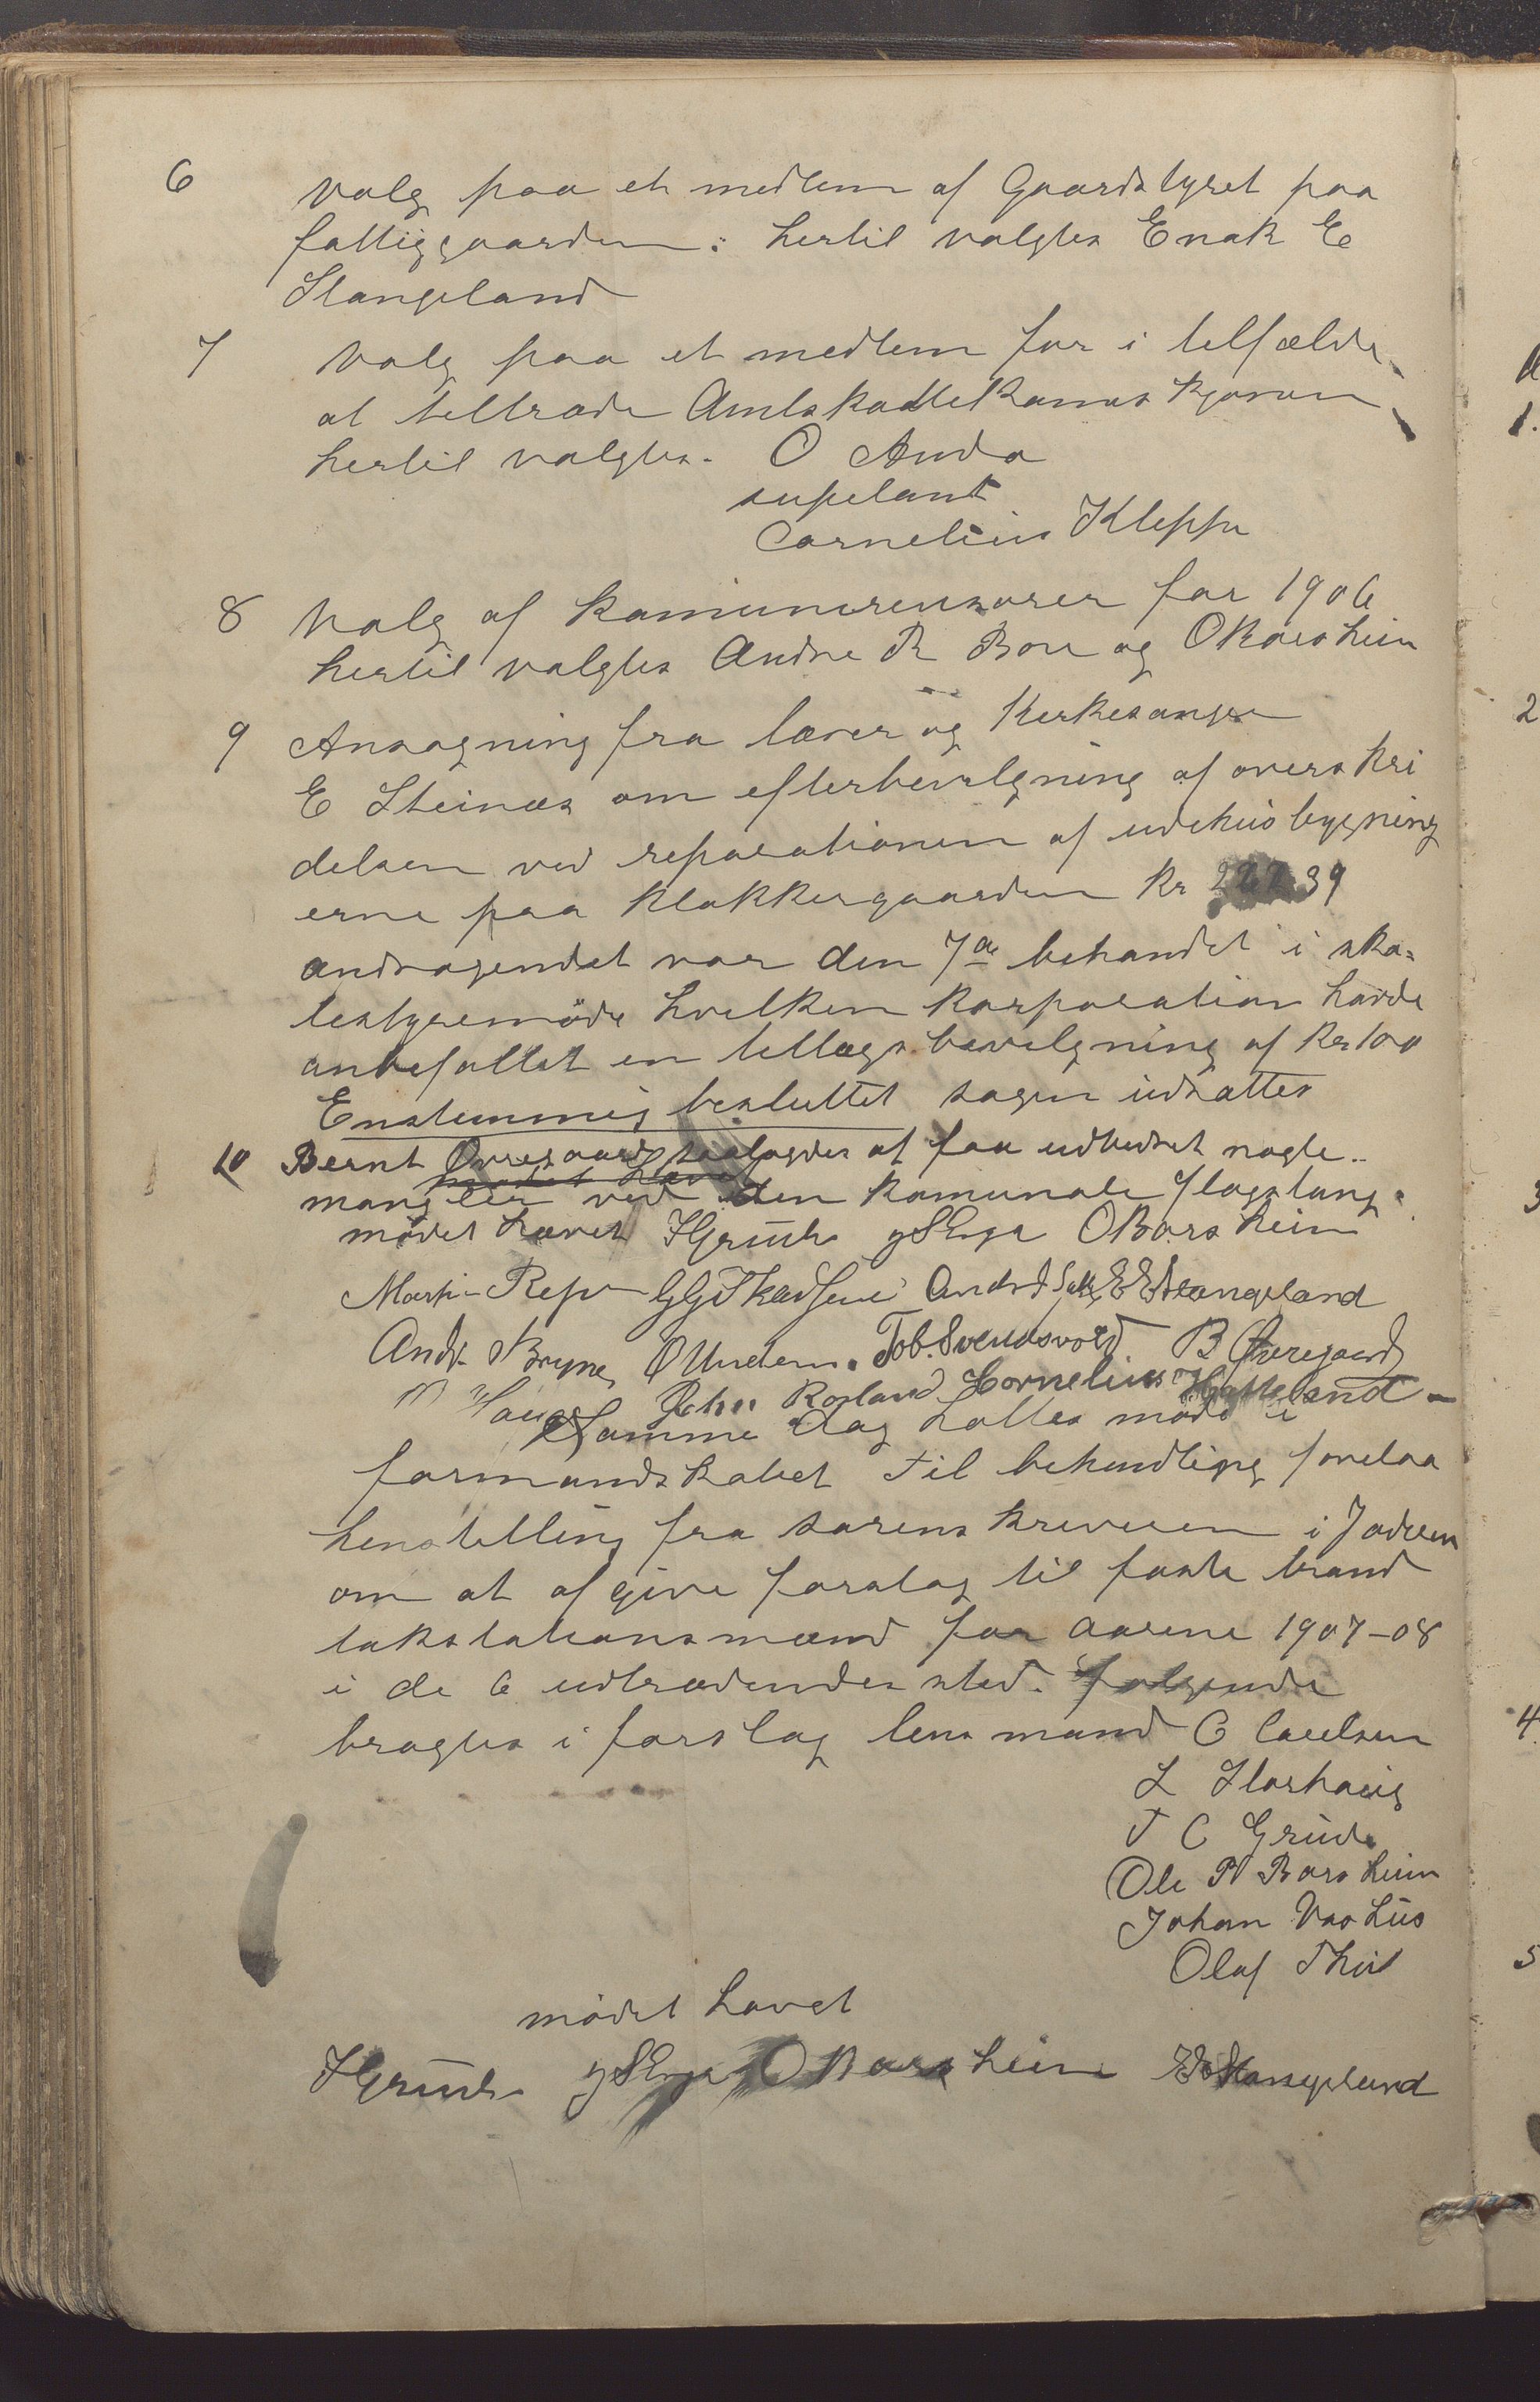 6 Valg paa et medlem af Gaardstyret paa
fattiggaarden: hertil valgtes Enok E
Stangeland
7 Valg paa et medlem for i telfælde
at teltræde Amtskattekommiskjonen
hertil valgtes. O Anda
supelant
Cornelius Kleppe
8 Valg af Komunerevisorer for 1906
hertil valgtes Andre R Bore og O Borsheim
9 Ansøgning fra lærer og Kirkesanger
E Steinnes om efterbevelgning af overskri
delsen ved reparationen af udehusbygning
erne paa Klokkergaarden Kr 39
andragendet var den 7de behandlet i sko=
lestyremöde hvilken Korporation havde
anbefallet en tellægsbevilgning af Kr 100
Enstemmig besluttet sagen udsattes
10 Bernt Øvregaard paalagdes at faa udbedret nogle
mødet hævet
mangler ved den Komunale flagstang.
mødet hævet HGrude O Borsheim
Martin Repe EEStangeland
Andr. Bryne O Undem. Tob. Svendsvold. B Øvregaard
Haugen John Rosland Cornelius Hatteland
Samme dag holtes møde i
formandskabet til behandling forelaa
henstelling fra sorenskriveren i Jæderen
om at afgive forslag til faste brand
takstationsmænd for aarene 1907-08
i de 6 udtrædendes sted. følgende
bragtes i forslag lensmand C
L Storhaug
T C Grude
Ole P Borsheim
Johan Vashus
Olaf Thu
mødet hævet
HGrude O Borsheim EEStangeland
1.
2
3
4
5